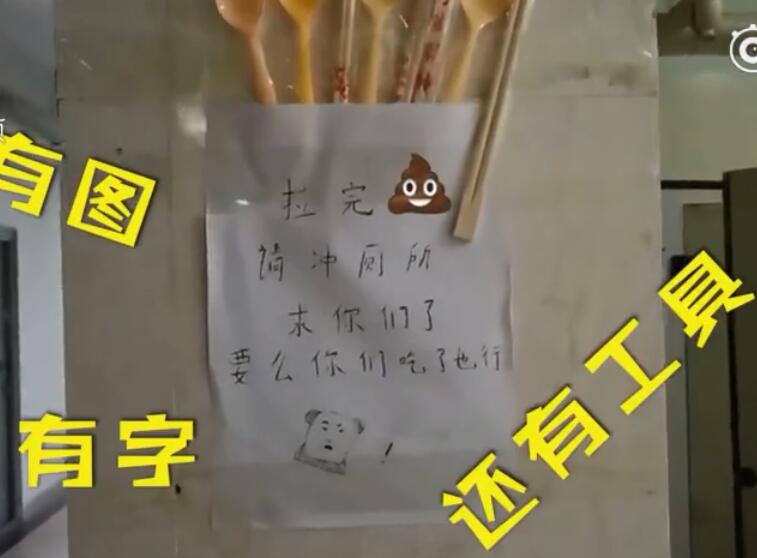 有图
拉完💩
请冲厕所
求你们了
要么你们吃了也行
！
有字
还有工具